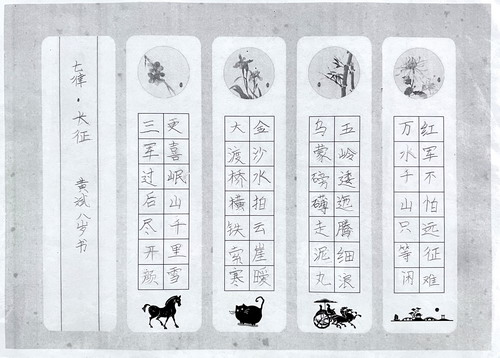 红军不怕远征难
万水千山只等闲
五岭逶迤腾细浪
乌蒙磅礴走泥丸
金沙水拍云崖暖
大渡桥横铁索寒
更喜岷山千里雪
三军过后尽开颜
七律·长征 黄 八岁书